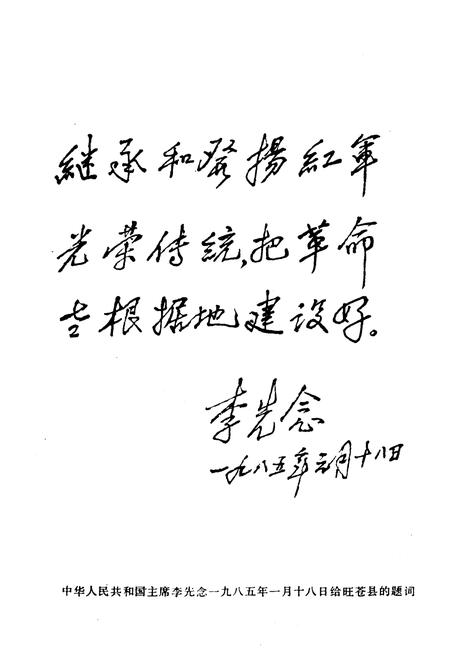 继承和發揚紅軍
光荣传统,把革命
老根据地建设好。
李先念
一九八五年元月十八日
中华人民共和国主席李先念一九八五年一月十八日给旺苍县的题词